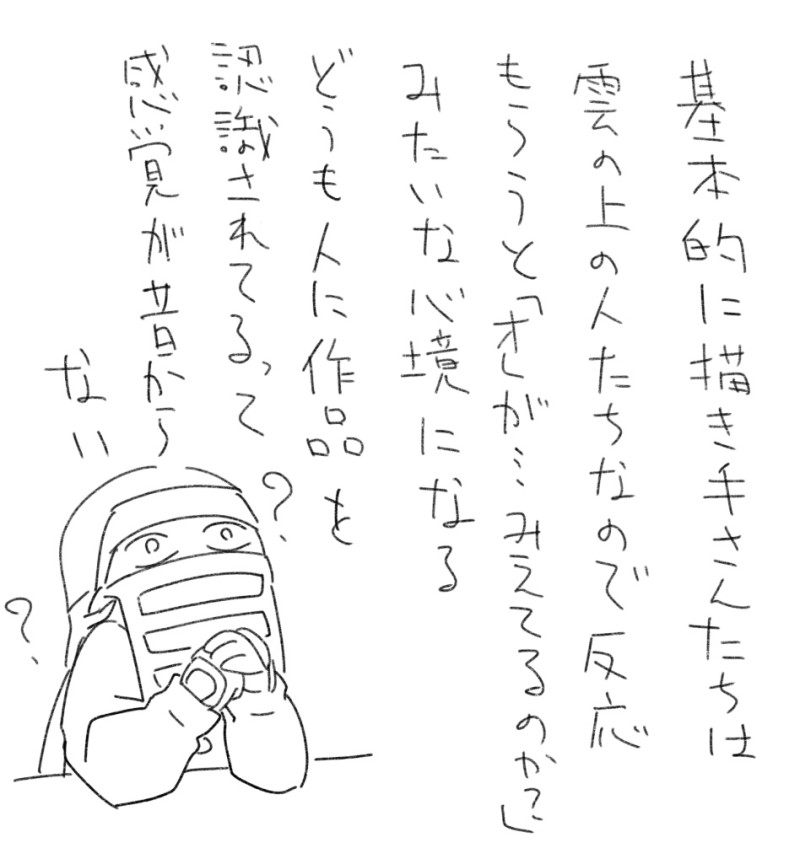 基本的に描き手さんたちは
雲の上の人たちなので反応
もらうと「オレが…みえてるのか?」
みたいな心境になる
どうも人に作品を
認識されてるって
感覚が昔から
ない
?
?